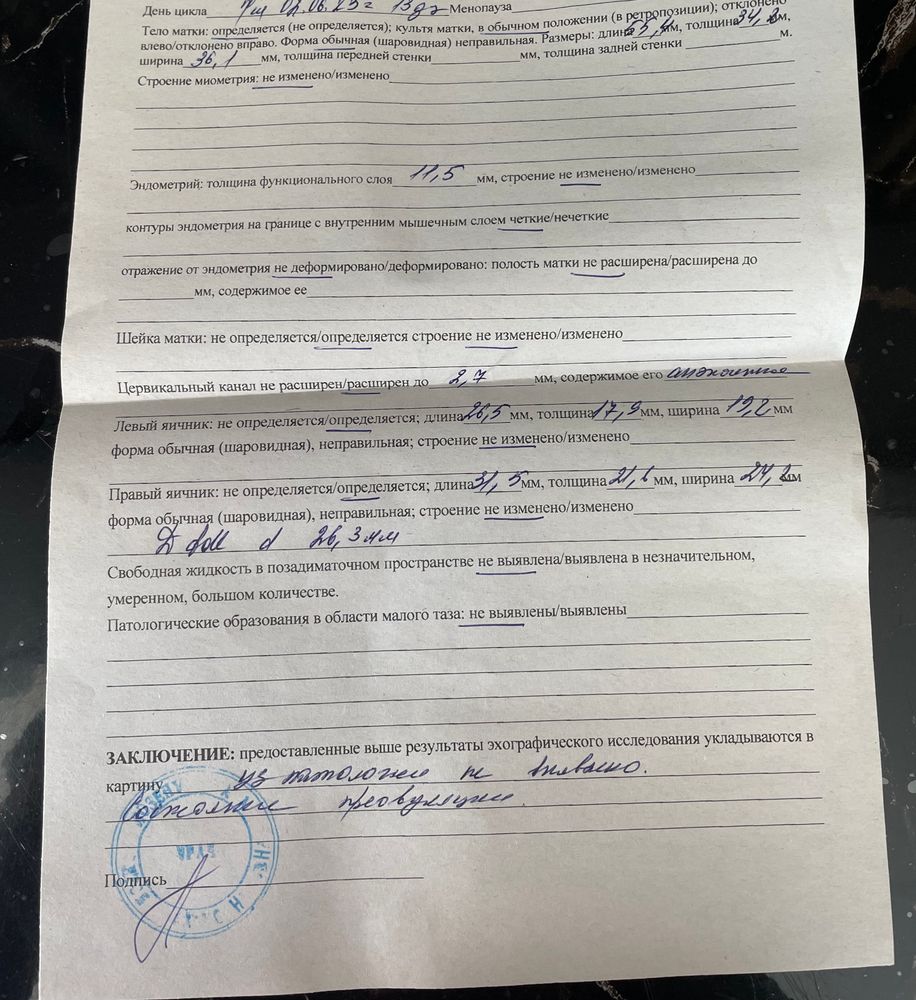 День цикла 02.06.23 г 13 д Менопауза
Тело матки: определяется (не определяется); культя матки, в обычном положении (в ретропозиции); отклонено
влево/отклонено вправо. Форма обычная (шаровидная) неправильная. Размеры: длина мм, толщина 34,2 мм,
ширина 36,1 мм, толщина передней стенки мм, толщина задней стенки м.
Строение миометрия: не изменено/изменено
Эндометрий: толщина функционального слоя 11,5 мм, строение не изменено/изменено
контуры эндометрия на границе с внутренним мышечным слоем четкие/нечеткие
отражение от эндометрия не деформировано/деформировано: полость матки не расширена/расширена до
мм, содержимое ее
Шейка матки: не определяется/определяется строение не изменено/изменено
Цервикальный канал не расширен/расширен до 2,7 мм, содержимое его анэхогенное
Левый яичник: не определяется/определяется; длина 26,5 мм, толщина 17,9 мм, ширина 19,2 мм
форма обычная (шаровидная), неправильная; строение не изменено/изменено
Правый яичник: не определяется/определяется; длина 31,5 мм, толщина мм, ширина 24,2 мм
форма обычная (шаровидная), неправильная; строение не изменено/изменено
D foll d 26,3 мм
Свободная жидкость в позадиматочном пространстве не выявлена/выявлена в незначительном,
умеренном, большом количестве.
Патологические образования в области малого таза: не выявлены/выявлены
ЗАКЛЮЧЕНИЕ: предоставленные выше результаты эхографического исследования укладываются в
картину уз патологии не выявлено.
Состояние преовуляции.
УРАЧ
Подпись